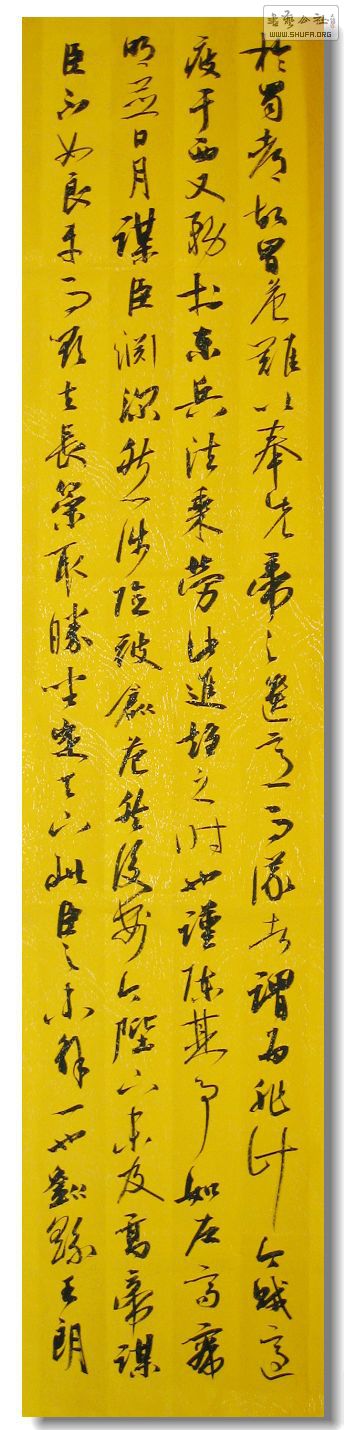 書藝公社
WWW.SHUFA.ORG
於蜀都故冒危難以奉先帝之遺意而議者謂為非計今賊適
疲于西又務於東兵法乘勞此進趨之時也謹陳其事如左高帝
明並日月謀臣淵深然涉險被創危然後安今陛下未及高帝謀
臣不如良平而欲以長策取勝坐定天下此臣之未解一也劉繇王朗